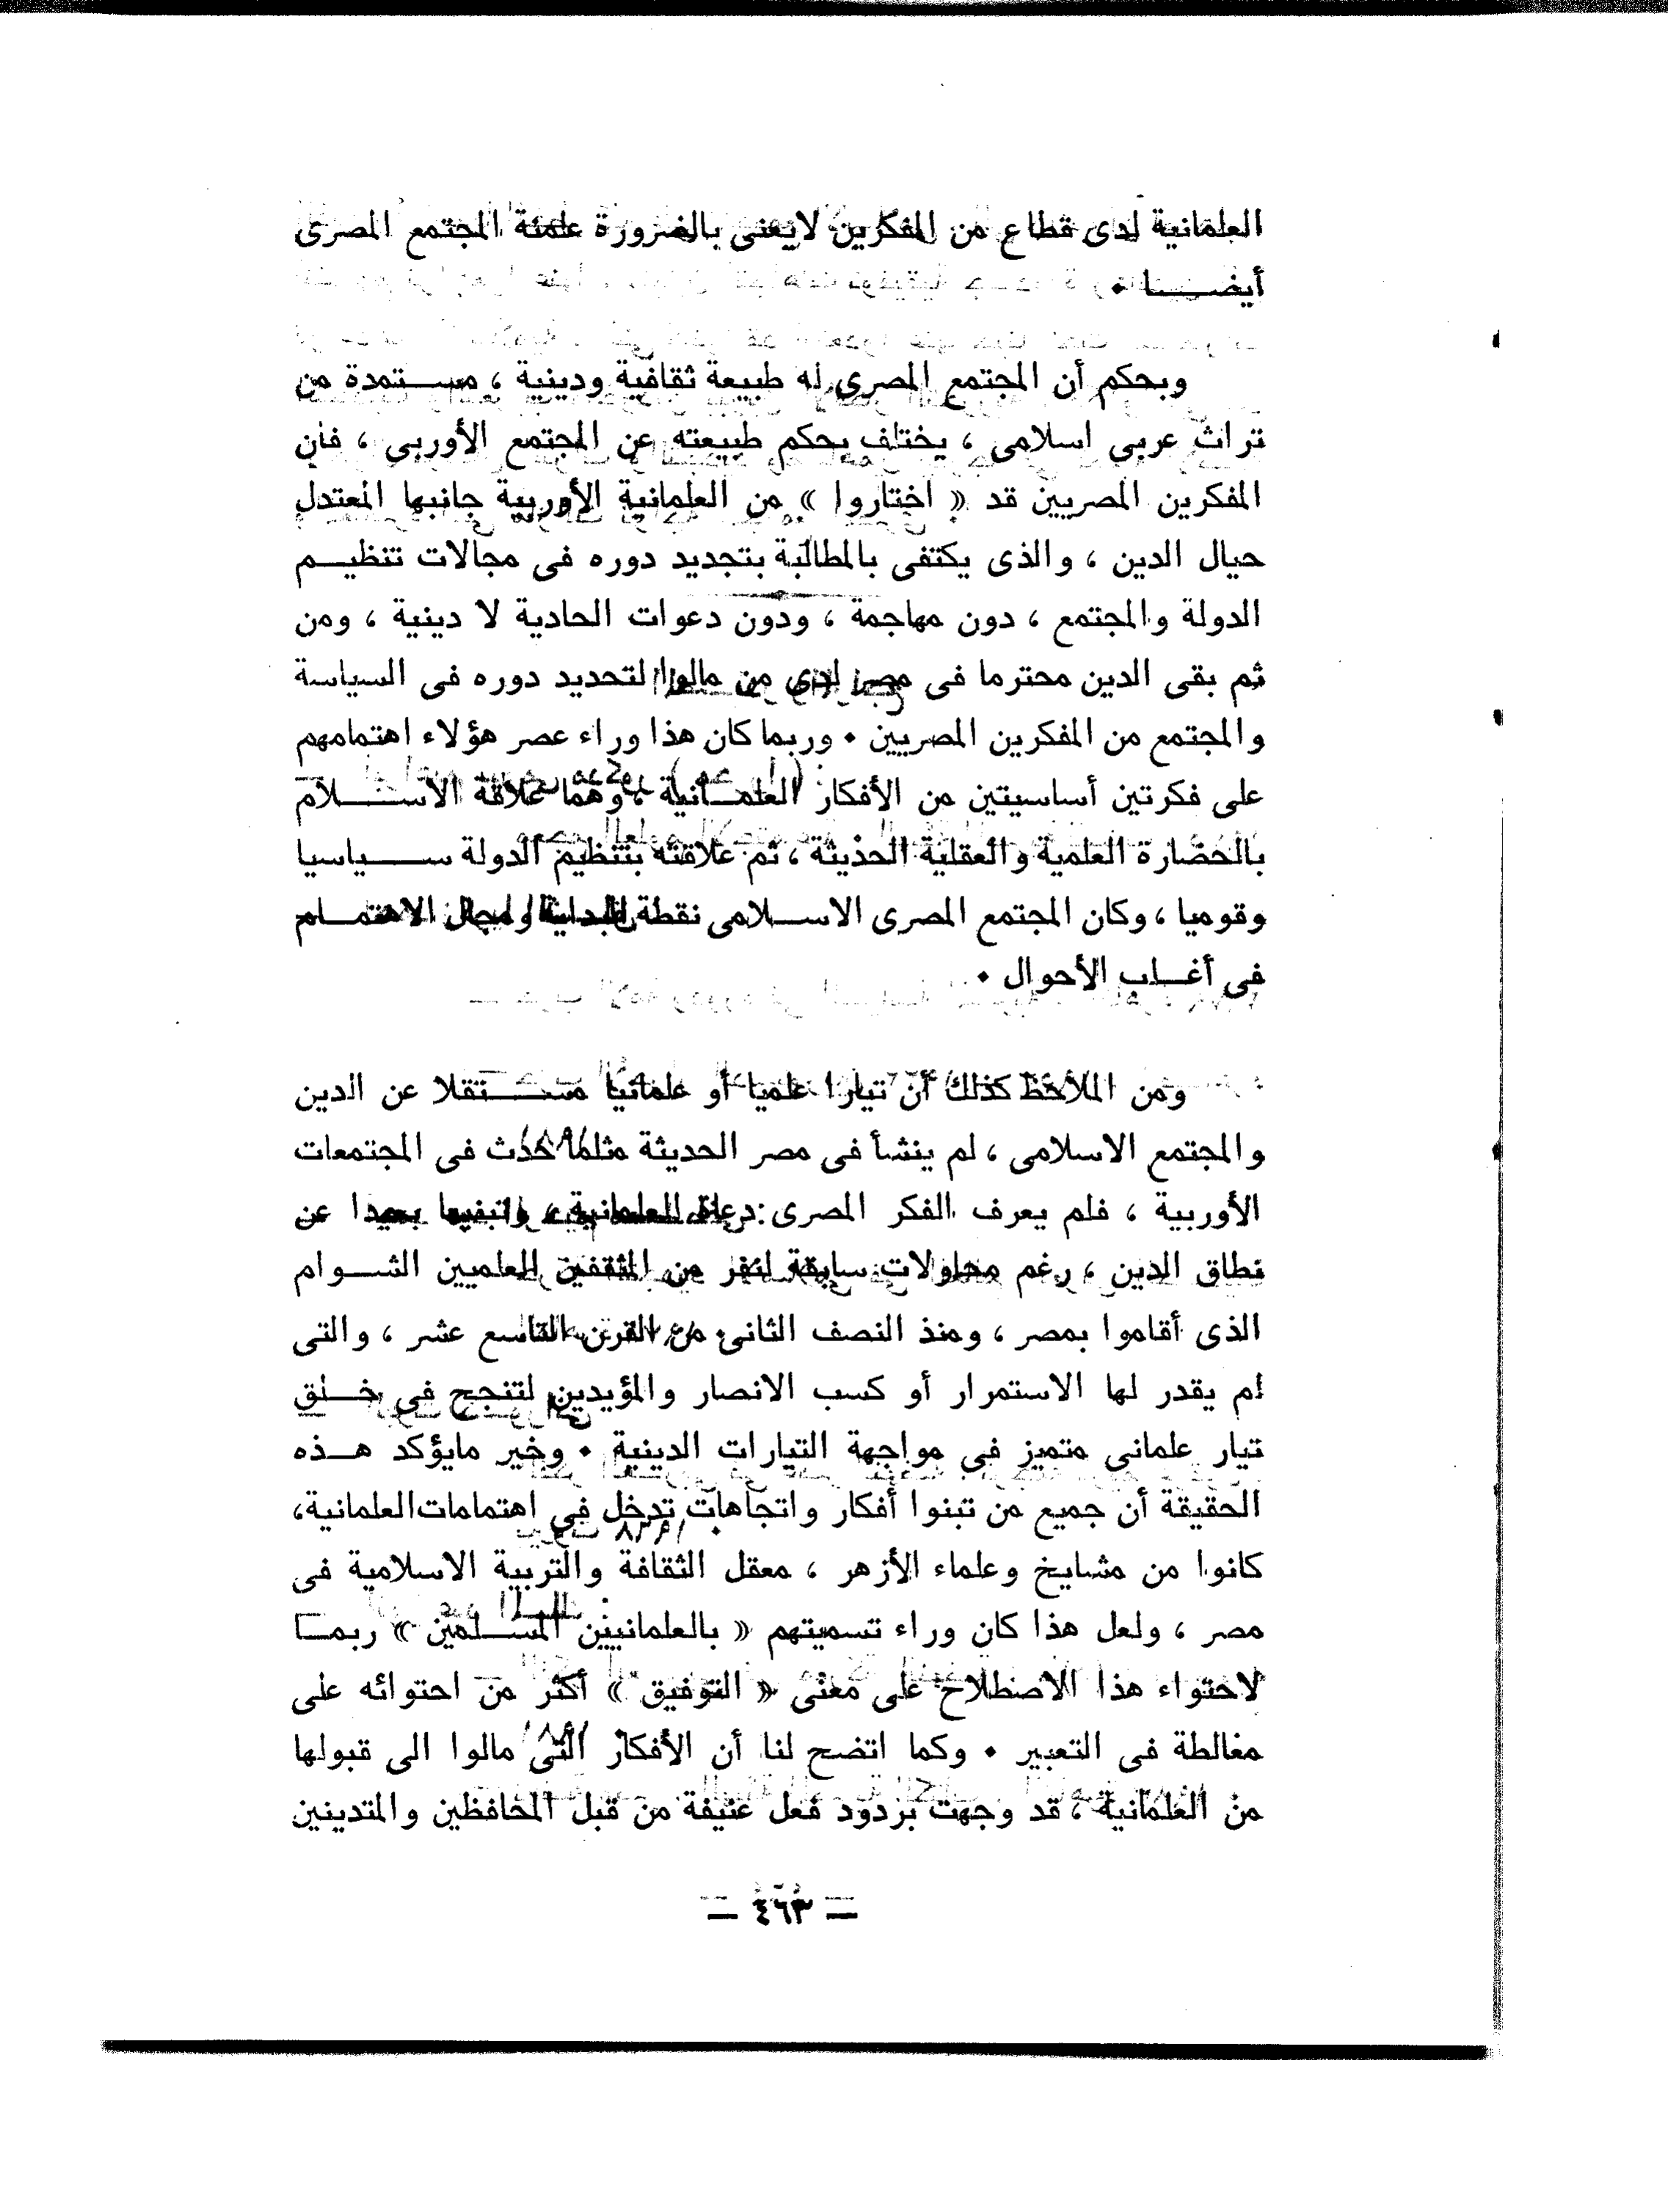 العلمانية لدى قطاع من المفكرين لايعنى بالضرورة علمنة المجتمع المصرى
أيضا .
وبحكم أن المجتمع المصرى له طبيعة ثقافية ودينية ، مستمدة من
تراث عربى اسلامى ، يختلف بحكم طبيعته عن المجتمع الأوربى ، فان
المفكرين المصريين قد « اختاروا » من العلمانية الأوربية جانبها المعتدل
حيال الدين ، والذى يكتفى بالمطالبة بتجديد دوره فى مجالات تنظيم
الدولة والمجتمع ، دون مهاجمة ، ودون دعوات الحادية لا دينية ، ومن
ثم بقى الدين محترما فى مصر لدى من مالوا لتحديد دوره فى السياسة
والمجتمع من المفكرين المصريين . وربما كان هذا وراء عصر هؤلاء اهتمامهم
على فكرتين أساسيتين من الأفكار العلمانية ، وهما علاقة الاسلام
بالحضارة العلمية والعقلية الحديثة ، ثم علاقته بتنظيم الدولة سياسيا
وقوميا ، وكان المجتمع المصرى الاسلامى نقطة البداية ومجال الاهتمام
فى أغلب الأحوال .
ومن الملاحظ كذلك أن تيارا علميا أو علمانيا مستقلا عن الدين
والمجتمع الاسلامى ، لم ينشأ فى مصر الحديثة مثلما حدث فى المجتمعات
الأوربية ، فلم يعرف الفكر المصرى دعاة للعلمانية ، بعيدا عن
نطاق الدين ، رغم محاولات سابقة لنفر من المثقفين العلميين الشوام
الذى أقاموا بمصر ، ومنذ النصف الثانى من القرن التاسع عشر ، والتى
لم يقدر لها الاستمرار أو كسب الانصار والمؤيدين لتنجح فى خلق
تيار علمانى متميز فى مواجهة التيارات الدينية . وخير مايؤكد هذه
الحقيقة أن جميع من تبنوا أفكار واتجاهات تدخل فى اهتمامات العلمانية،
كانوا من مشايخ وعلماء الأزهر ، معقل الثقافة والتربية الاسلامية فى
مصر ، ولعل هذا كان وراء تسميتهم « بالعلمانيين المسلمين » ربما
لاحتواء هذا الاصطلاح على معنى « التوفيق » أكثر من احتوائه على
مغالطة فى التعبير . وكما اتضح لنا أن الأفكار التى مالوا الى قبولها
من العلمانية ، قد وجهت بردود فعل عنيفة من قبل المحافظين والمتدينين
— ٤٦٣ —